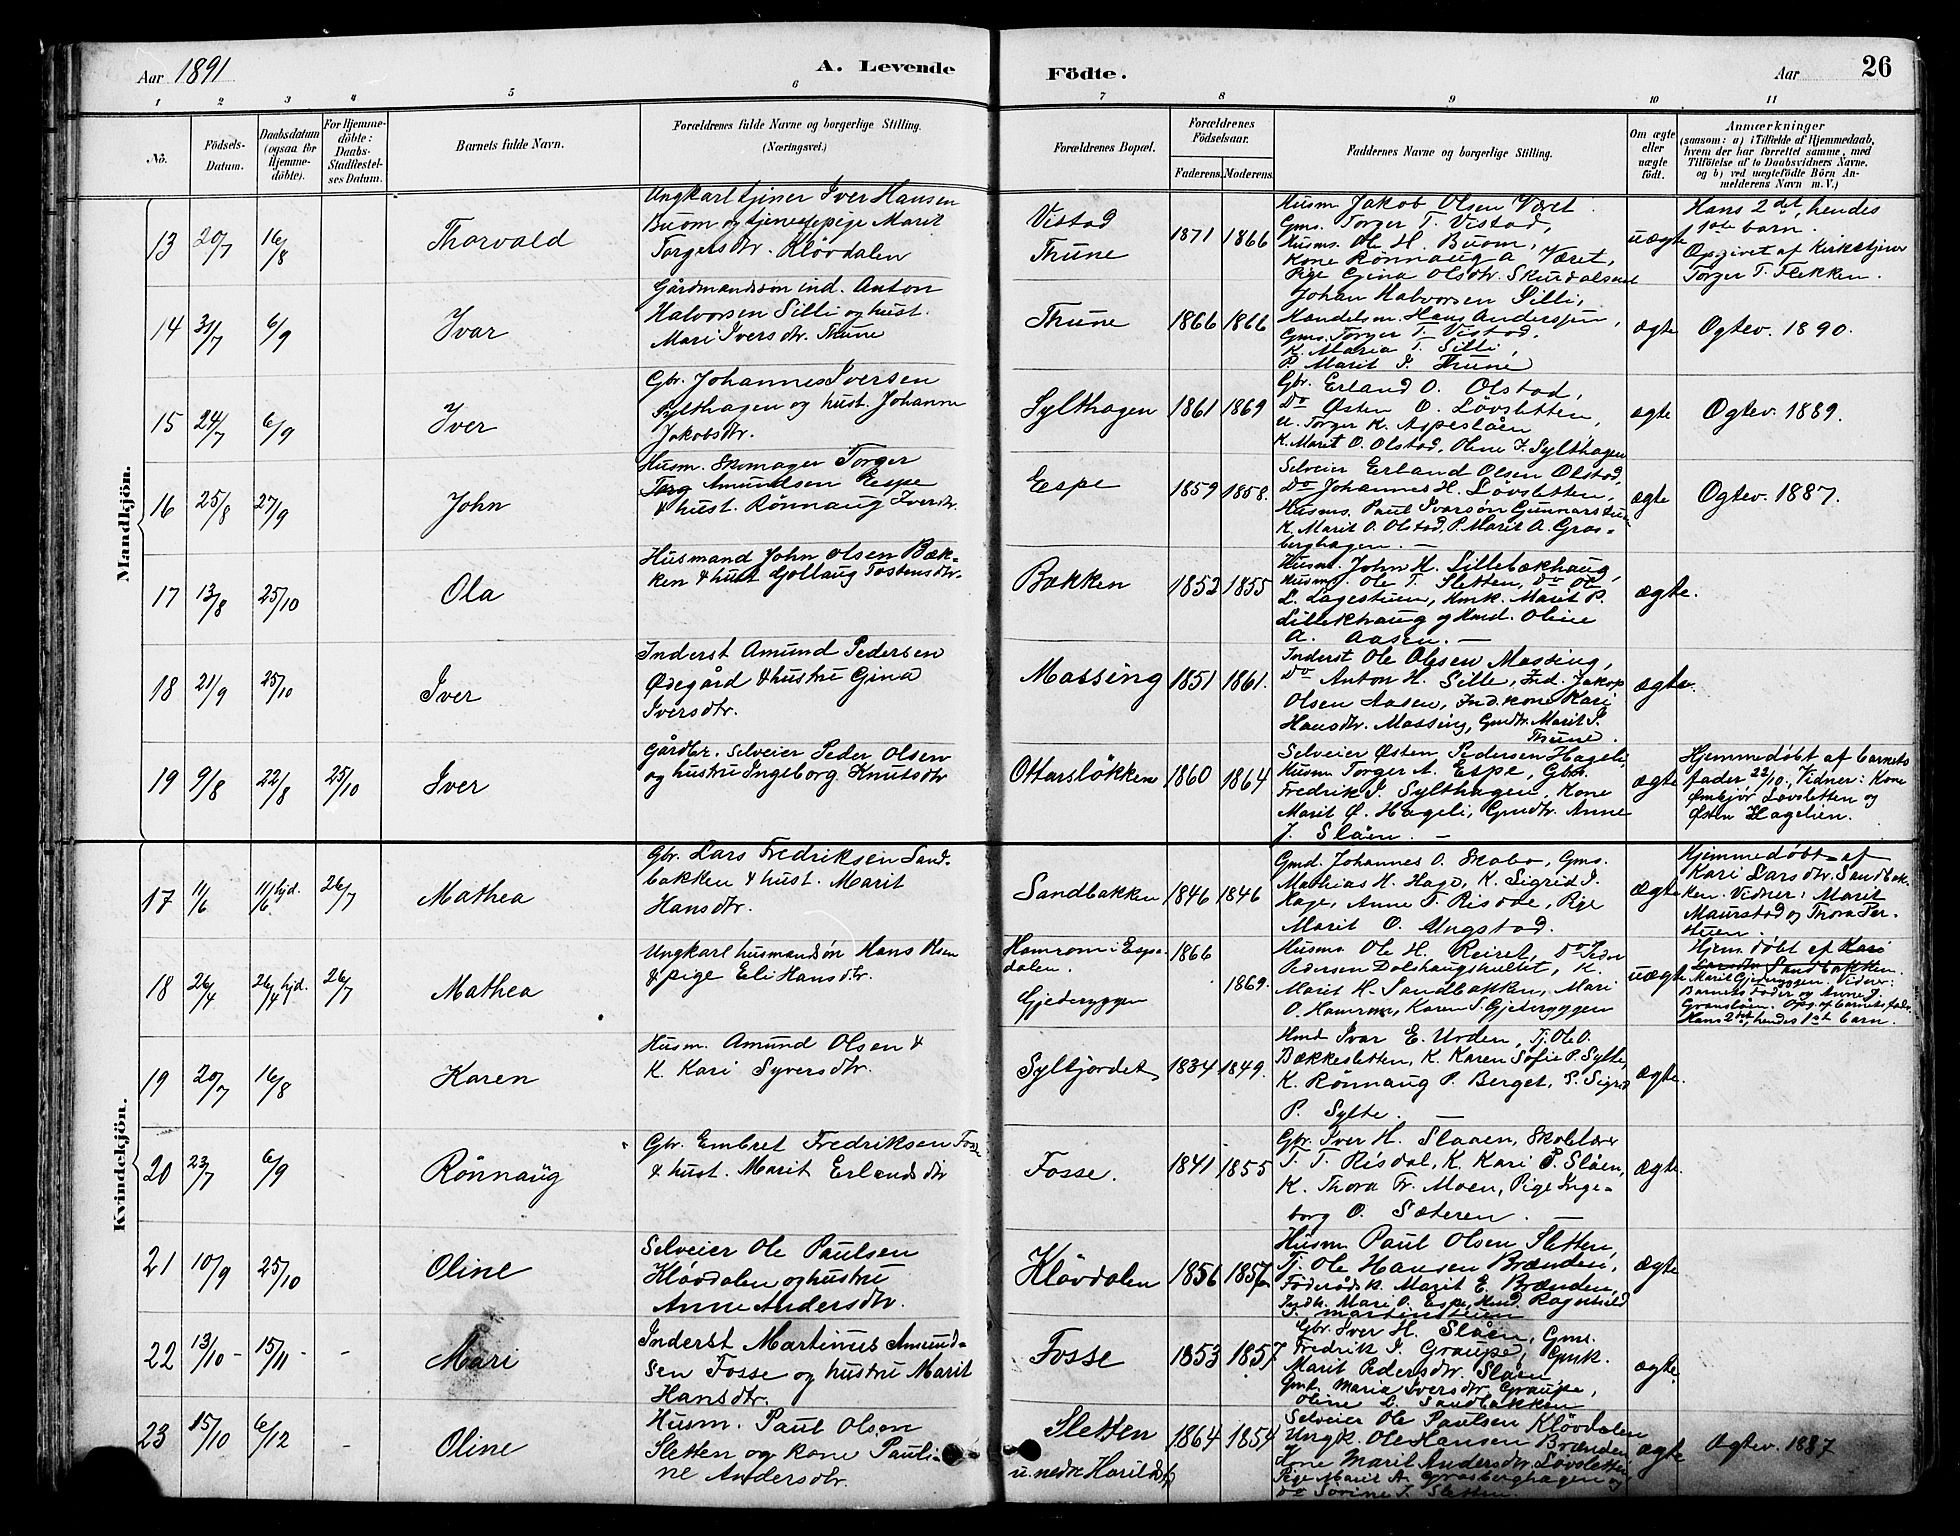 Aar 1891
A. Levende Födte.
Aar 26
1 2 3 4 5 6 7 8 9 10 11
No.
Födsels-
Datum.
Daabsdatum
(ogsaa for
Hjemme-
döbte).
For Hjemme-
döbte:
Daabs-
Stadfæstel-
ses Datum.
Barnets fulde Navn.
Forældrenes fulde Navne og borgerlige Stilling.
(Næringsvei.)
Forældrenes Bopæl.
Forældrenes
Födselsaar.
Faderens. Moderens.
Faddernes Navne og borgerlige Stilling.
Om ægte
eller
uægte
født.
Anmærkninger
(saasom: a) i Tilfælde af Hjemmedaab,
hvem der har forrettet samme, med
Tilföielse af to Daabsvidners Navne,
og b) ved uægtefödte Börn An-
melderens Navn m. V.)
Mandkjön.
13 20/7 16/8 Thorvald
Ungkarl tjener Iver Hansen
Buom og tjenestepige Marit
Torgersdtr. Klövdalen
Vistad
Thune
1871 1866
Husm. Jakob Olsen Været
Gms. Torger T. Vistad,
Husms. Ole H. Buom,
Kone Rønnaug A. Været,
Pige Gina Olsdtr.
uægte
Hans 2det, hendes
1ste barn.
Opgivet af Kirketjener
Torger T. Flekken.
14 31/7 6/9 Ivar
Gårdmandssön ind. Anton
Halvorsen Silli og hust.
Mari Iversdtr. Thune
Thune
1866 1866
Johan Halvorsen Silli,
Handelsm. Hans Andersen,
Gms. Torger T. Vistad,
K. Maria T. Silli,
P. Marit I. Thune
ægte
Ogtev. 1890.
15 24/7 6/9 Iver
Gbr. Johannes Iversen
Sylthagen og hust. Johanne
Jakobsdtr.
Sylthagen
1861 1869
Gbr. Erland O. Olstad,
Do Østen O. Lövsletten,
U. Torger K. Aspeslåen
K. Marit O. Olstad, Oline J. Sylthagen
ægte
Ogtev. 1889.
16 25/8 27/9 John
Husm. Skomager Torger
Amundsen Espe
& hust. Rønnaug Iversdtr.
Espe
1859 1858.
Selveier Erland Olsen Olstad,
Do Johannes H. Lövsletten,
Husms. Paul Ivarsön
K. Marit O. Olstad, P. Marit A. Gras-
berghagen. —
ægte
Ogtev. 1887.
17 13/8 25/10 Ola
Husmand John Olsen Bæk-
ken & hust Gollaug Tostensdtr.
Bækken
1852 1855
Husm. John H. Lillebækhaug,
Husms. Ole T. Sletten, Do Ole
L. Lagestuen, Hmk. Marit P.
Lillekhaug og Hmd. Oline
A. Aasen. —
ægte.
18 21/9 25/10 Iver
Inderst Amund Pedersen
Ødegård & hustru Gina
Iversdtr.
Massing
1851 1861.
Inderst Ole Olsen Massing,
Do Anton H. Sille, Ind. Jakop
Olsen Aasen, Ind. kone Kari
Hansdtr. Massing, Gmdtr. Marit I.
Thune.
ægte.
19 9/8 22/8 25/10 Iver
Gårdbr. Selveier Peder Olsen
og hustru Ingeborg Knutsdtr
Ottarslökken
1860 1864
Selveier Østen Pedersen Hageli,
Husm Torger A. Espe, Gbr.
Fredrik J. Sylthagen, Kone
Marit Ø. Hageli, Gmdtr. Anne
J. Slåen. —
ægte
Hjemmedöbt af barnets
fader 22/10. Vidner: Kone
Lövsletten og
Østen Hagelien.
Kvindekjön.
17 11/6 11/6 hjd. 26/7 Mathea
Gbr. Lars Fredriksen Sand-
bakken & hust. Marit
Hansdtr.
Sandbakken
1846 1846
Gmd. Johannes O. Skabo, Gms.
Mathias H. Hage, K. Sigrid I.
Hage, Anne T. Risdae, Pige
Marit O. Ungstad.
ægte
Hjemmedöbt af
Kari Larsdtr. Sandbak-
ken. Vidner: Marit
Maurstad og Thora Per-
stuen.
18 26/4 26/4 hjd. 26/7 Mathea
Ungkarl husmandsön Hans Olsen
& pige Eli Hansdtr.
Hamrom i Espe-
dalen.
Gjederyggen
1866
1869.
Husms Ole H. Reiret, Do Peder
Pedersen Dolshaugshullet, K.
Marit H. Sandbakken, Mari
O. Hamrom, Karen S. Gjederyggen
uægte
Hjem. döbt af Kari
Larsdtr Sandbakken.
Marit Gjederyggen Vidner:
Barnets fader og Anne J.
Granslåen. Opg. af barnets fader
Hans 2det, hendes 1st barn.
19 20/7 16/8 Karen
Husm. Amund Olsen &
K. Kari Syversdtr.
Syltjordet
1834 1849.
Hmd Ivar E. Urden, Tj. Ole O.
Bækkesletten, K. Karen Sofie P. Sylte,
K. Rønnaug P. Berget, P. Sigrid
P. Sylte.
ægte.
20 23/7 6/9 - Rønnaug
Gbr. Embret Fredriksen Fosse
& hust. Marit Erlandsdtr
Fosse.
1841 1855
Gbr. Iver H. Slaaen, Skolelærer
T. T. Risdal, K. Kari P. Slåen,
K. Thora Fr. Moen, Pige Inge-
borg O. Sæteren. —
ægte.
21 10/9 25/10 - Oline
Selveier Ole Paulsen
Klövdalen og hustru
Anne Andersdtr.
Klövdalen
1856 1857
Husm Paul Olsen Sletten,
Tj. Ole Hansen Brænden,
Föderådsk. Marit E. Brænden,
Indk. Mari O. Espe, Hmd. Ragnhild
J. Martinstuen
ægte
22 13/10 - 15/11 - - Mari
Inderst Martinus Amund-
sen Fosse og hustru Marit
Hansdtr.
Fosse
1853 1857
Gbr. Iver H. Slåen, Gms.
Fredrik I. Graupe, Gmk.
Marit Pedersdtr. Slåen
Gmk. Maria Iversdtr. Graupe,
Oline L. Sandbakken
ægte
23 15/10 6/12 - Oline
Husm. Paul Olsen
Sletten og kone Pauli-
ne Andersdtr.
Sletten
u. nedre Harildst.
1864 1854
Selveier Ole Paulsen Klövdalen
Ungk. Ole Hansen Brænden
Kone Marit Andersdtr. Lövsletten
Pige Marit A. Grasberghagen og
do Sörine I. Sletten.
ægte
Ogtev. 1887